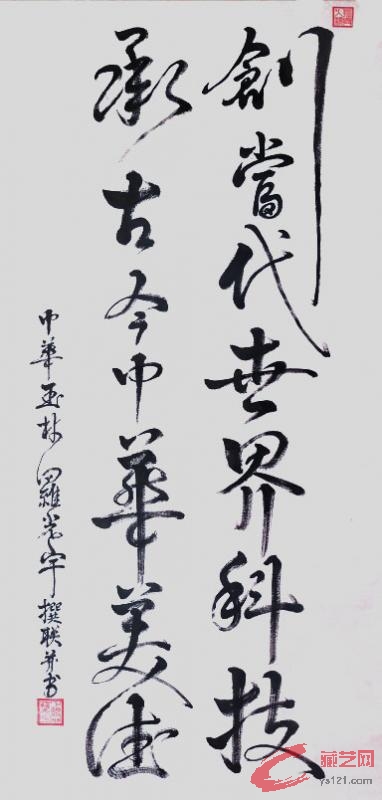 創當代世界科技
承古今中華美德
中華玉林羅光宇撰联并书
藏艺网
ys121.com